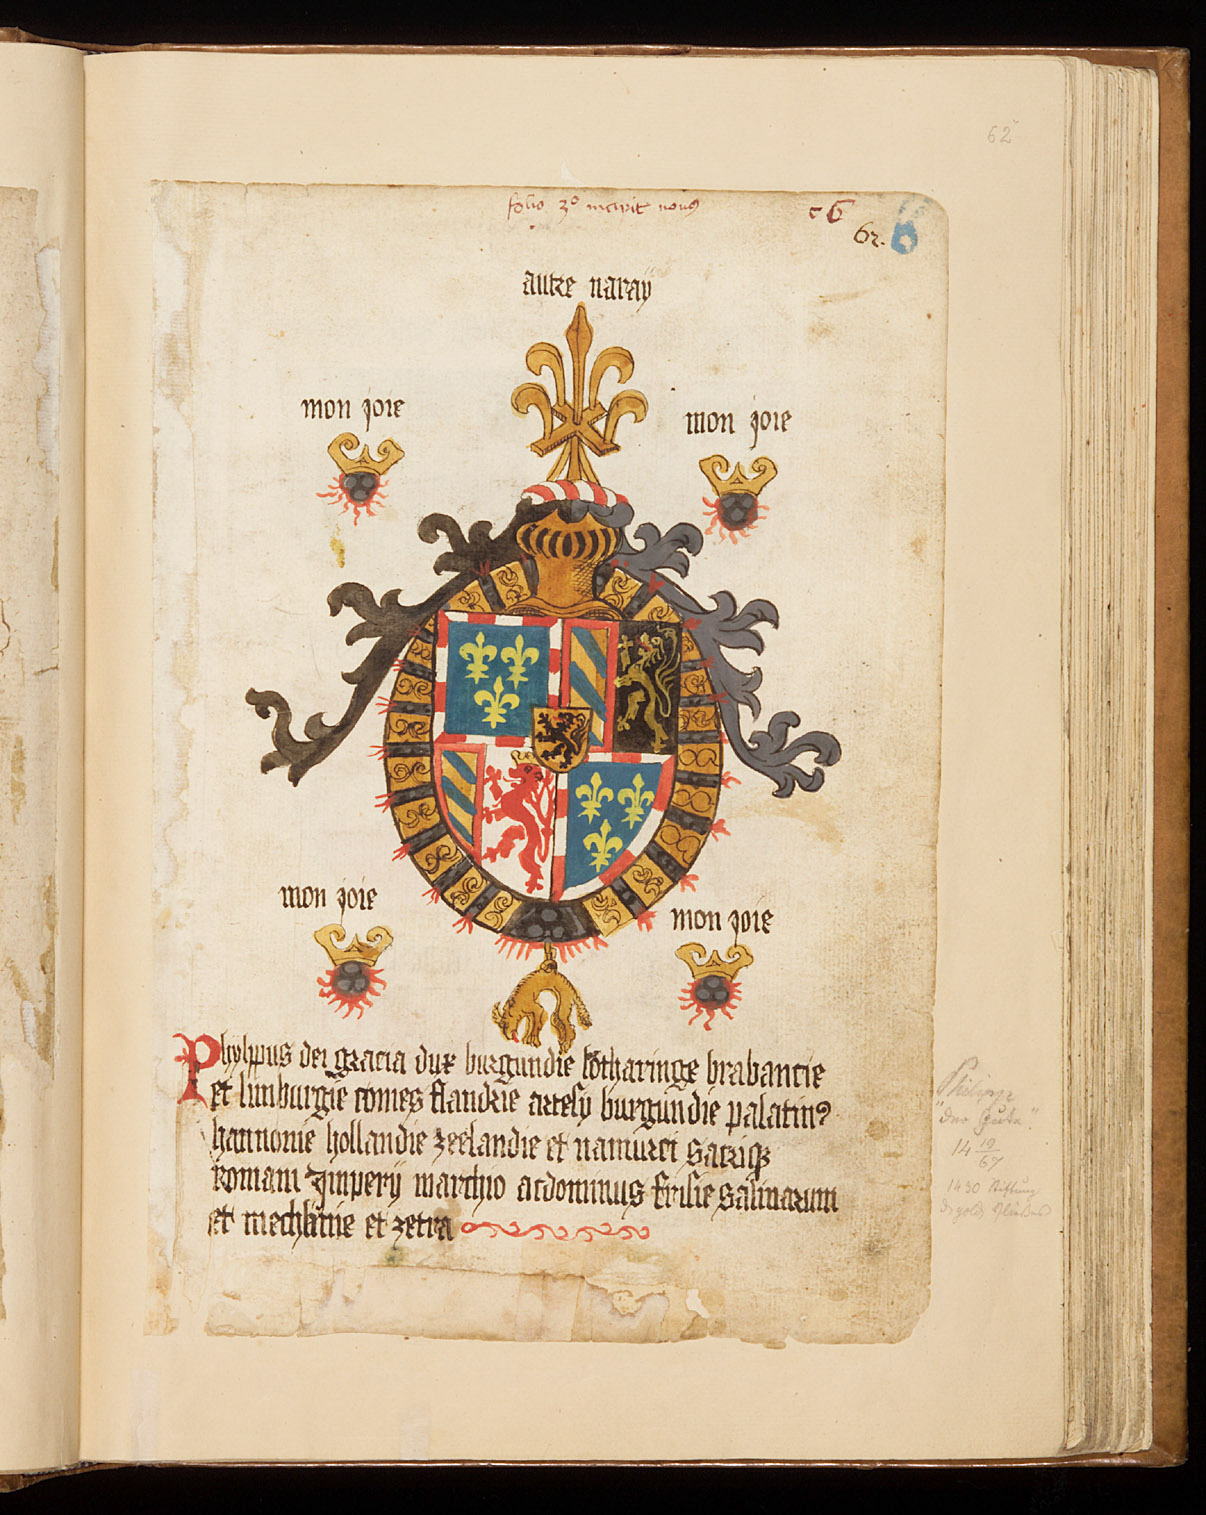 62
folio 3º incipit novus
c 6
62.
6
autre naray
mon joie
mon joie
mon joie
mon joie
Phylppus dei gracia dux burgundie lotharinge brabancie
et limburgie comes flandrie artesy burgundie palatin9
hannonie hollandie zeelandie et namurci Sacriq
Romani Imperij marchio acdominus frisie Salinarum
et mechlinie et zetra
Philipp
"der Gute".
14 19/67
1430 Stiftung